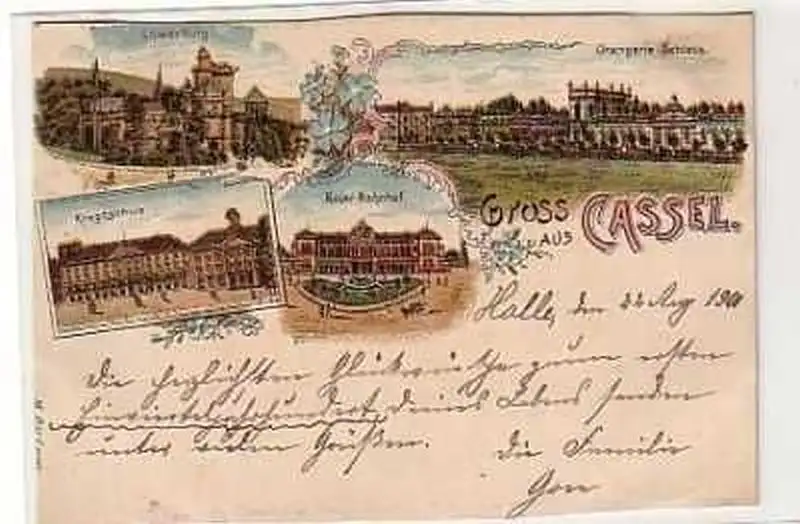 Löwenburg
Orangerie-Schloss
Kriegsschule
Neuer Bahnhof
Gruss
aus
Cassel.
Halle, den 22 Aug 190
Die herzlichsten Glückwünsche zum ersten
Einvierteljahrhundert deines Lebens senden
unter vielen Grüßen.
Die Familie